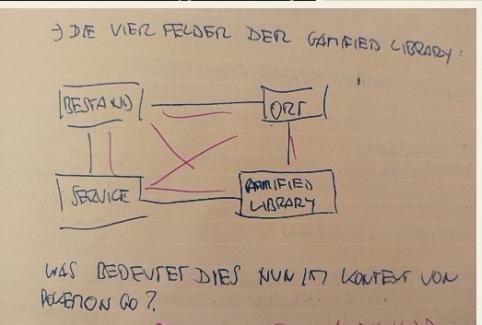 → DIE VIER FELDER DER GAMIFIED LIBRARY:
BESTAND
ORT
SERVICE
GAMIFIED
LIBRARY
WAS BEDEUTET DIES NUN IM KONTEXT VON
POKEMON GO?